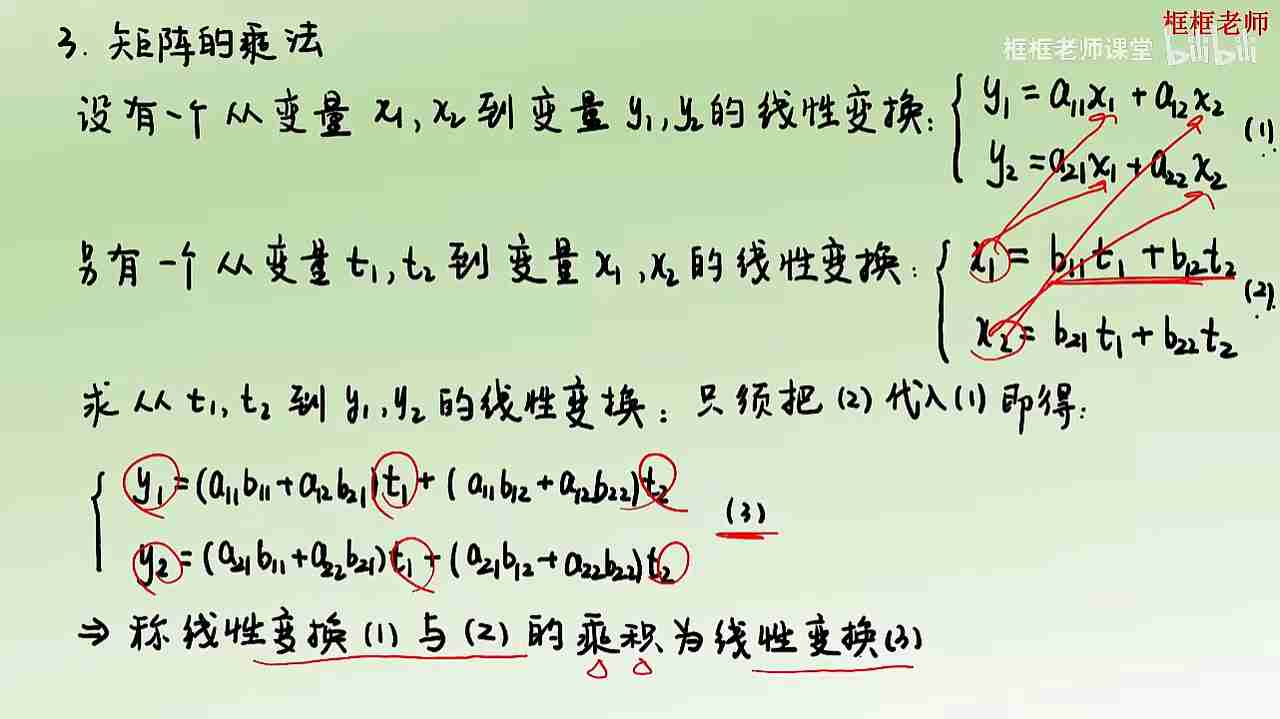 框框老师
框框老师课堂 bilibili
3. 矩阵的乘法
设有一个从变量 x₁, x₂ 到变量 y₁, y₂ 的线性变换: { y₁ = a₁₁x₁ + a₁₂x₂
y₂ = a₂₁x₁ + a₂₂x₂ (1).
另有一个从变量 t₁, t₂ 到变量 x₁, x₂ 的线性变换: { x₁ = b₁₁t₁ + b₁₂t₂
x₂ = b₂₁t₁ + b₂₂t₂ (2).
求从 t₁, t₂ 到 y₁, y₂ 的线性变换: 只须把 (2) 代入 (1) 即得:
{ y₁ = (a₁₁b₁₁ + a₁₂b₂₁)t₁ + (a₁₁b₁₂ + a₁₂b₂₂)t₂
y₂ = (a₂₁b₁₁ + a₂₂b₂₁)t₁ + (a₂₁b₁₂ + a₂₂b₂₂)t₂ (3)
⇒ 称线性变换 (1) 与 (2) 的乘积为线性变换 (3)